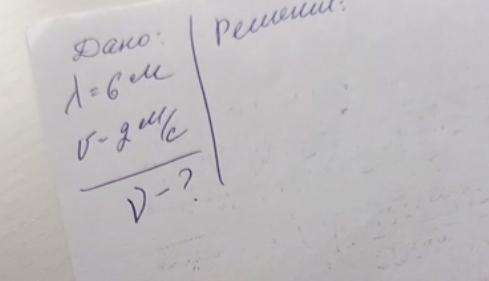 Дано:
λ=6 м
v-2 м/с
ν-?
Решение: